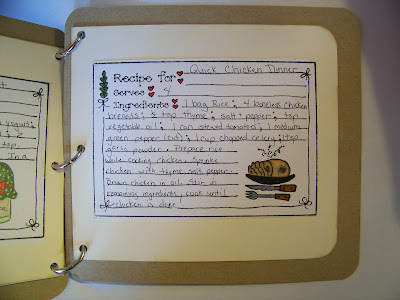 yogurt;
tsp
In a
Recipe for Quick Chicken Dinner
Serves 4
Ingredients 1 bag Rice; 4 boneless chicken
breasts; ½ tsp thyme; salt + pepper; tsp
vegetable oil; 1 can stewed tomatoes; 1 medium
green pepper (cut); 1 cup chopped celery; tsp
garlic powder. Prepare rice
while cooking chicken. Sprinkle
chicken with thyme, salt, pepper.
Brown chicken in oil. Stir in
remaining ingredients, cook until
chicken is done!